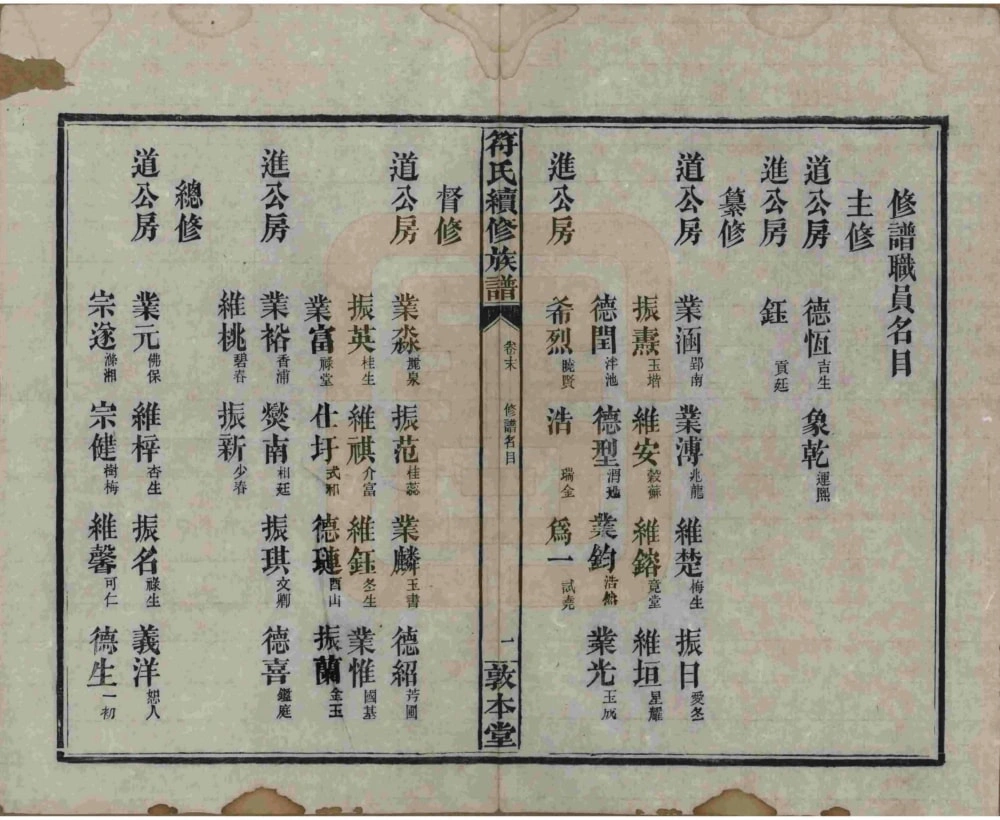 修譜職員名目
主修
道公房 德恆吉生 象乾運熙
進公房 鈺貢廷
纂修
道公房 業涵郢南 業溥兆龍 維楚梅生 振日愛冬
振燾玉堦 維安穀蘇 維鎔竟堂 維垣星耀
德閏泮池 德型渭 業鈞浩 業光玉成
進公房 希烈曉賢 浩瑞金 爲一試堯
符氏續修族譜 卷末 修譜名目 一 敦本堂
督修
道公房 業淼麗泉 振范桂蕊 業麟玉書 德紹芳圃
振英桂生 維祺介富 維鈺冬生 業惟國基
業富祿堂 仕圩式邦 德璉酉山 振蘭金玉
進公房 業裕香浦 燮南相廷 振琪文卿 德喜鑑庭
維桃碧春 振新少春
總修
道公房 業元佛保 維梓杏生 振名祿生 義洋恕人
宗遂滌湘 宗健樹梅 維馨可仁 德生一初